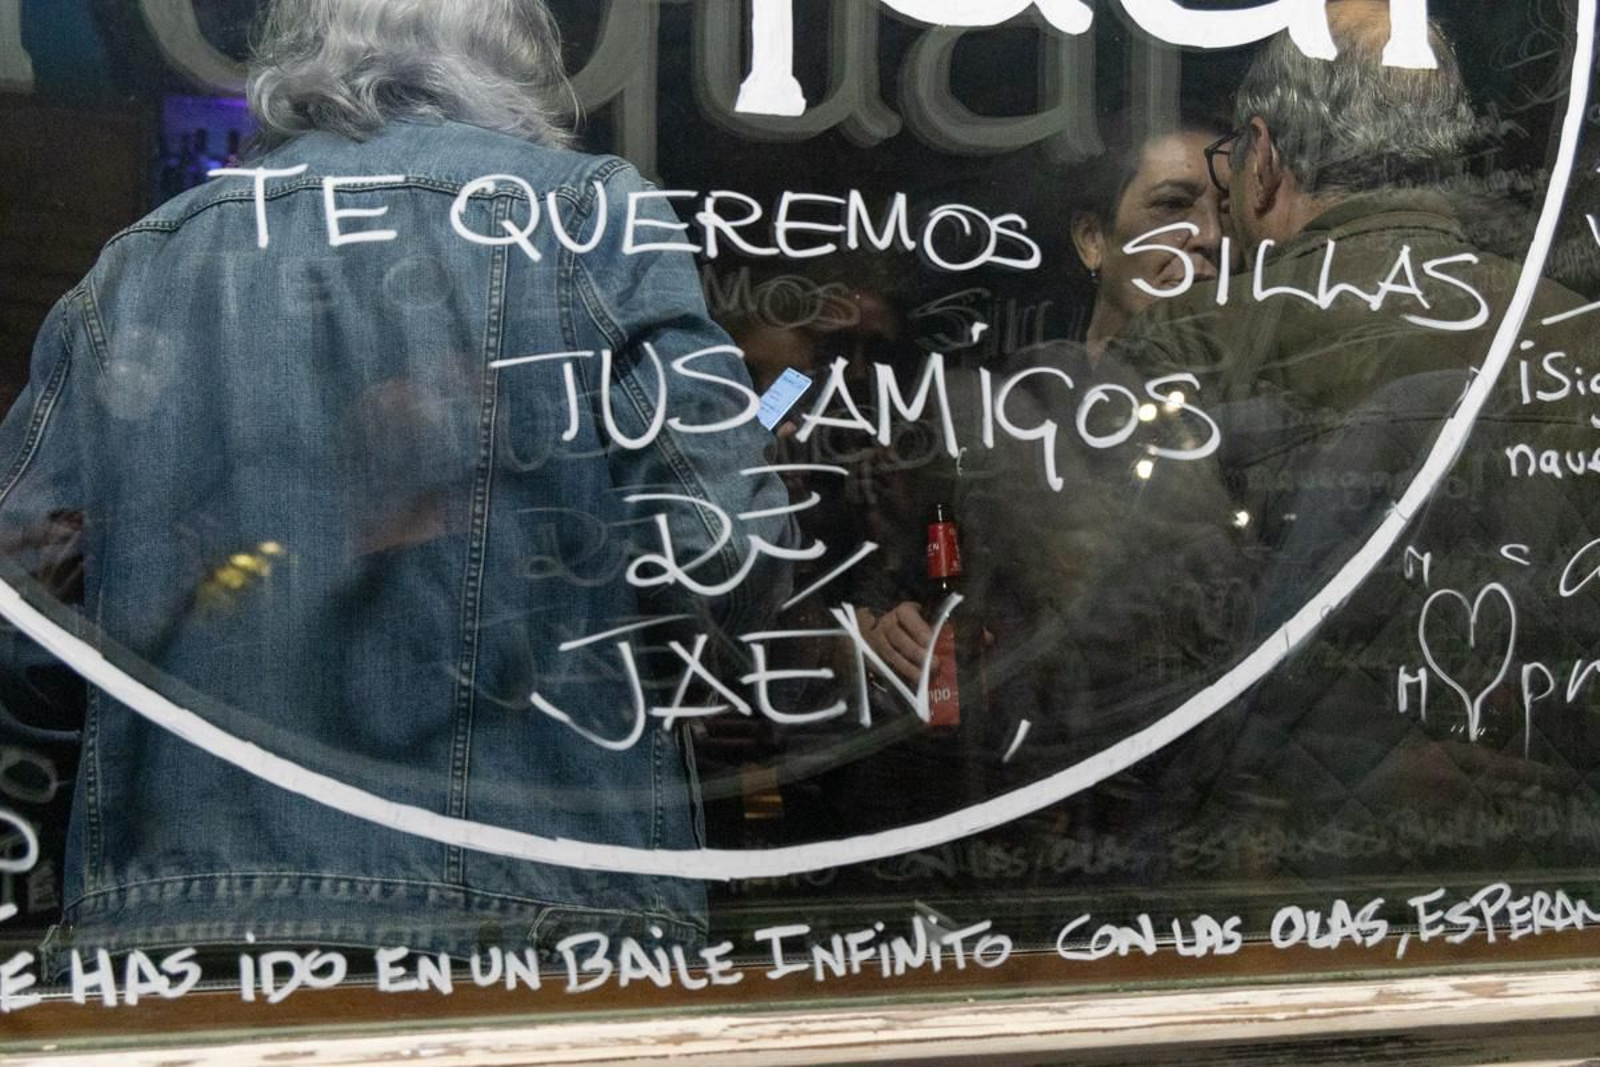 TE QUEREMOS SILLAS
TUS AMIGOS
DE
JAEN,
E HAS IDO EN UN BAILE INFINITO CON LAS OLAS, ESPERAN
¡Sig
nave
M